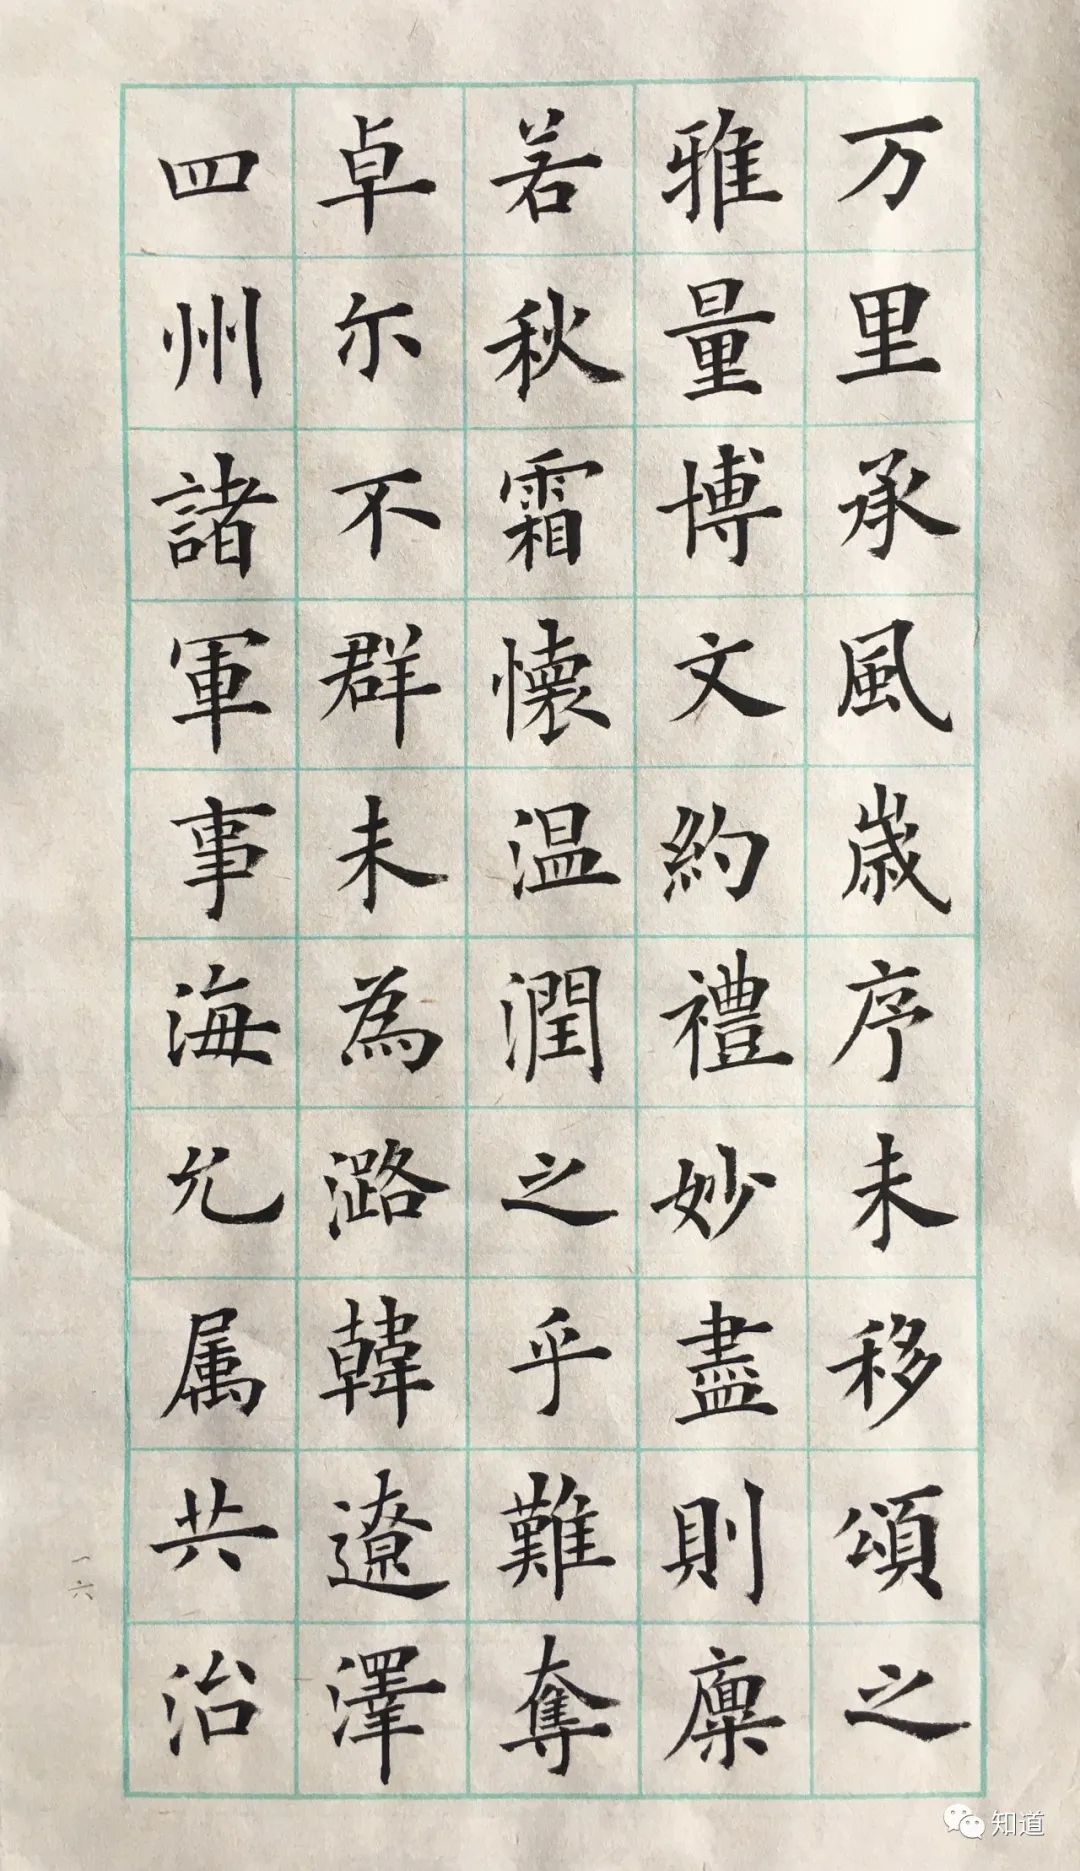 万里承風歲序未移頌之
雅量博文約禮妙盡則廩
若秋霜懷温潤之乎難奪
卓尔不群未為潞韓遼澤
四州諸軍事海允属共治
一六
知道